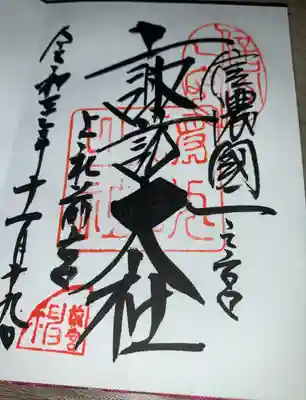 信濃國一之宮
諏訪大社
上社前宮
令和三年十一月十九日